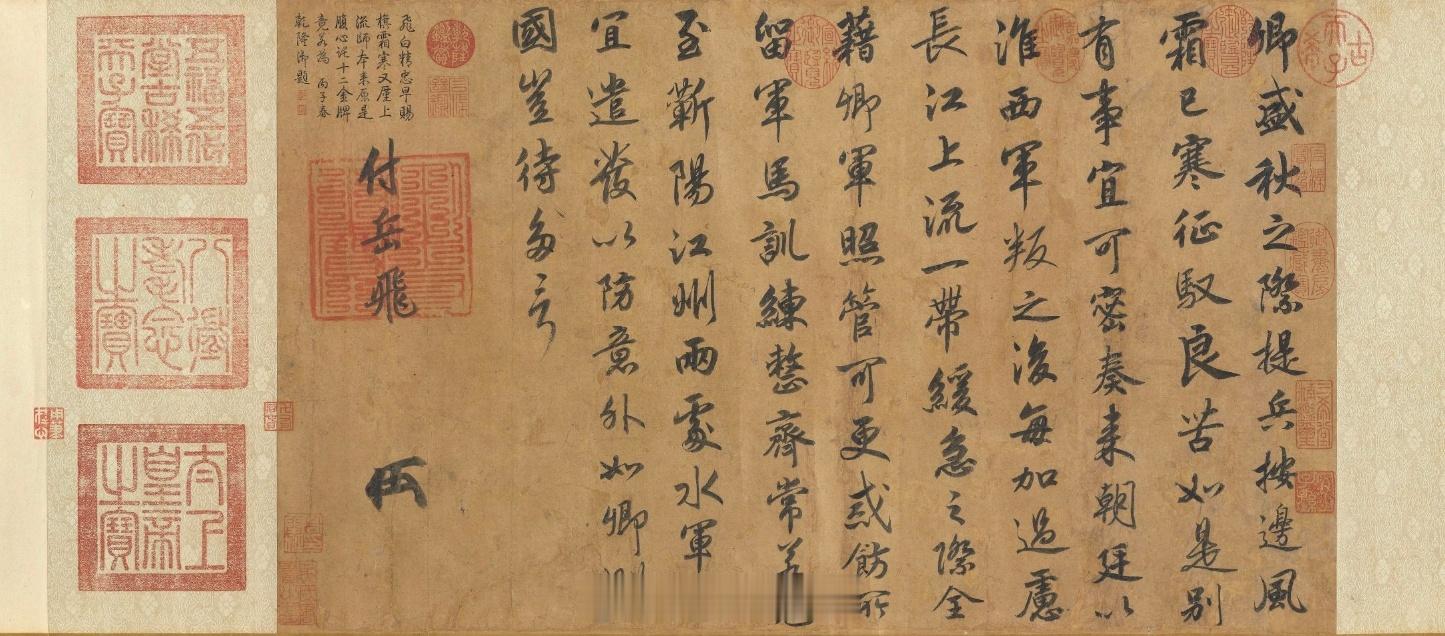 古希天子
卿盛秋之際提兵按邊風
霜已寒征馭良苦如是別
有事宜可密奏来朝廷以
淮西軍叛之後每加過慮
長江上流一帶緩急之際全
藉卿軍照管可更戒飭所
留軍馬訓練整齊常
至蘄陽江州兩處水軍
宜遣發以防意外如卿
國豈待多言
付岳飛
飛白精忠早賜
旗霜寒又厪上
流師本来原是
腹心託十二金牌
竟若為 丙子春
乾隆御題
五福五代
堂古稀
天子寶
八徵
耄念
之寶
太上
皇帝
之寶